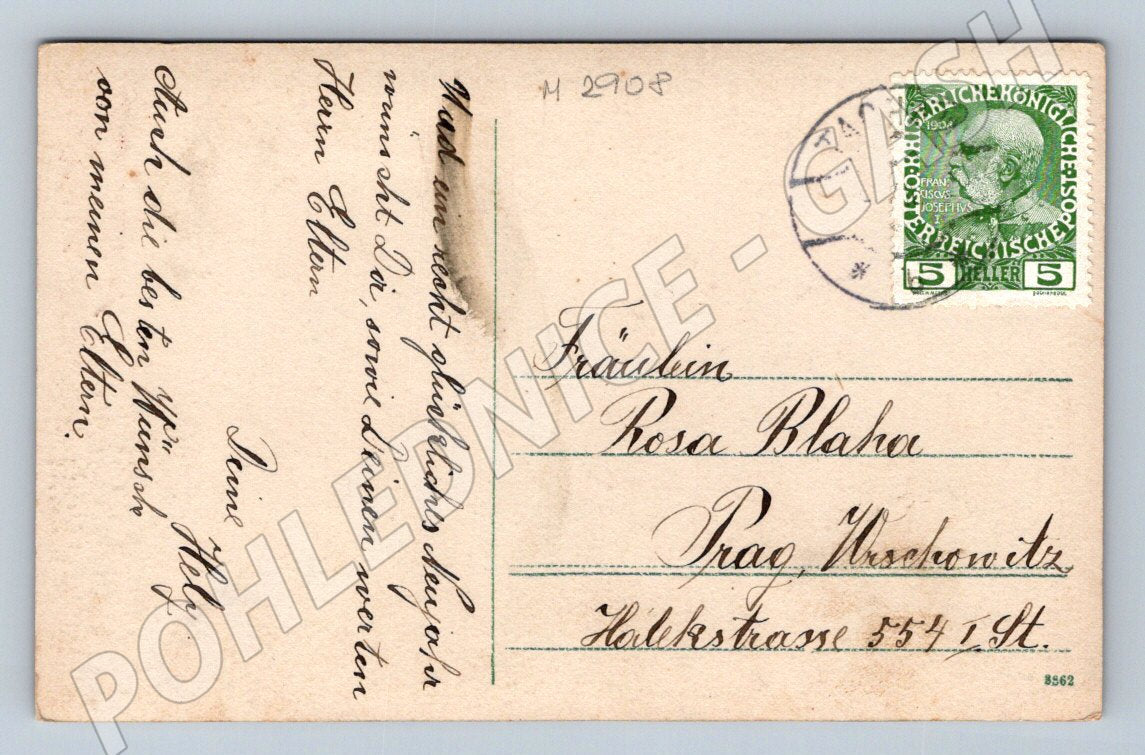 M 2908
Und ein recht glückliches Neujahr
wünscht Dir, sowie Deinen werten
Herrn Eltern
Deine Hela
Auch die besten Wünsche
von meinen Eltern.
Fräulein
Rosa Blaha
Prag, Wrschowitz
Hálekstrasse 554 I. St.
3862
KAISERLICHE KÖNIGLICHE
ÖSTERREICHISCHE
1908
FRAN
CISCUS
JOSEPHVS
I
5 HELLER 5
TACHAU
POHLEDNICE - GASH